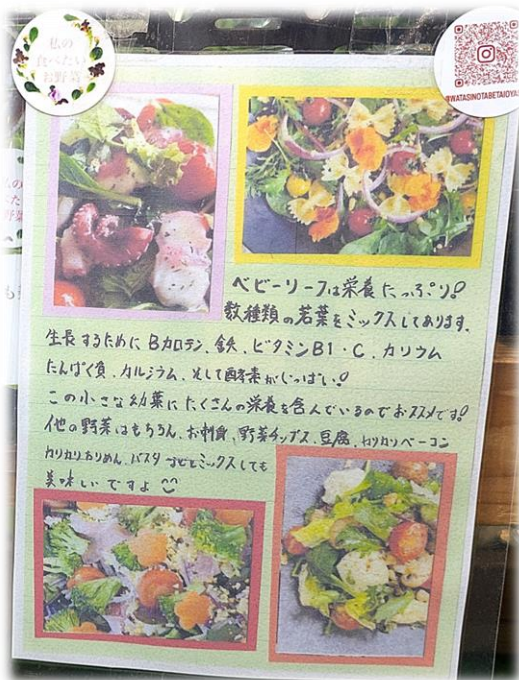 私の
食べたい
お野菜
@WATASINOTABETAIOYAS
ベビーリーフは栄養たっぷり!
数種類の若葉をミックスしてあります。
生長するためにBカロテン、鉄、ビタミンB1・C、カリウム
たんぱく質、カルシウム、そして酵素がいっぱい!
この小さな幼葉にたくさんの栄養を含んでいるのでおススメです!
他の野菜はもちろん、お刺身、野菜チップス、豆腐、カリカリベーコン
カリカリおりめん、パスタなどとミックスしても
美味しいですよ